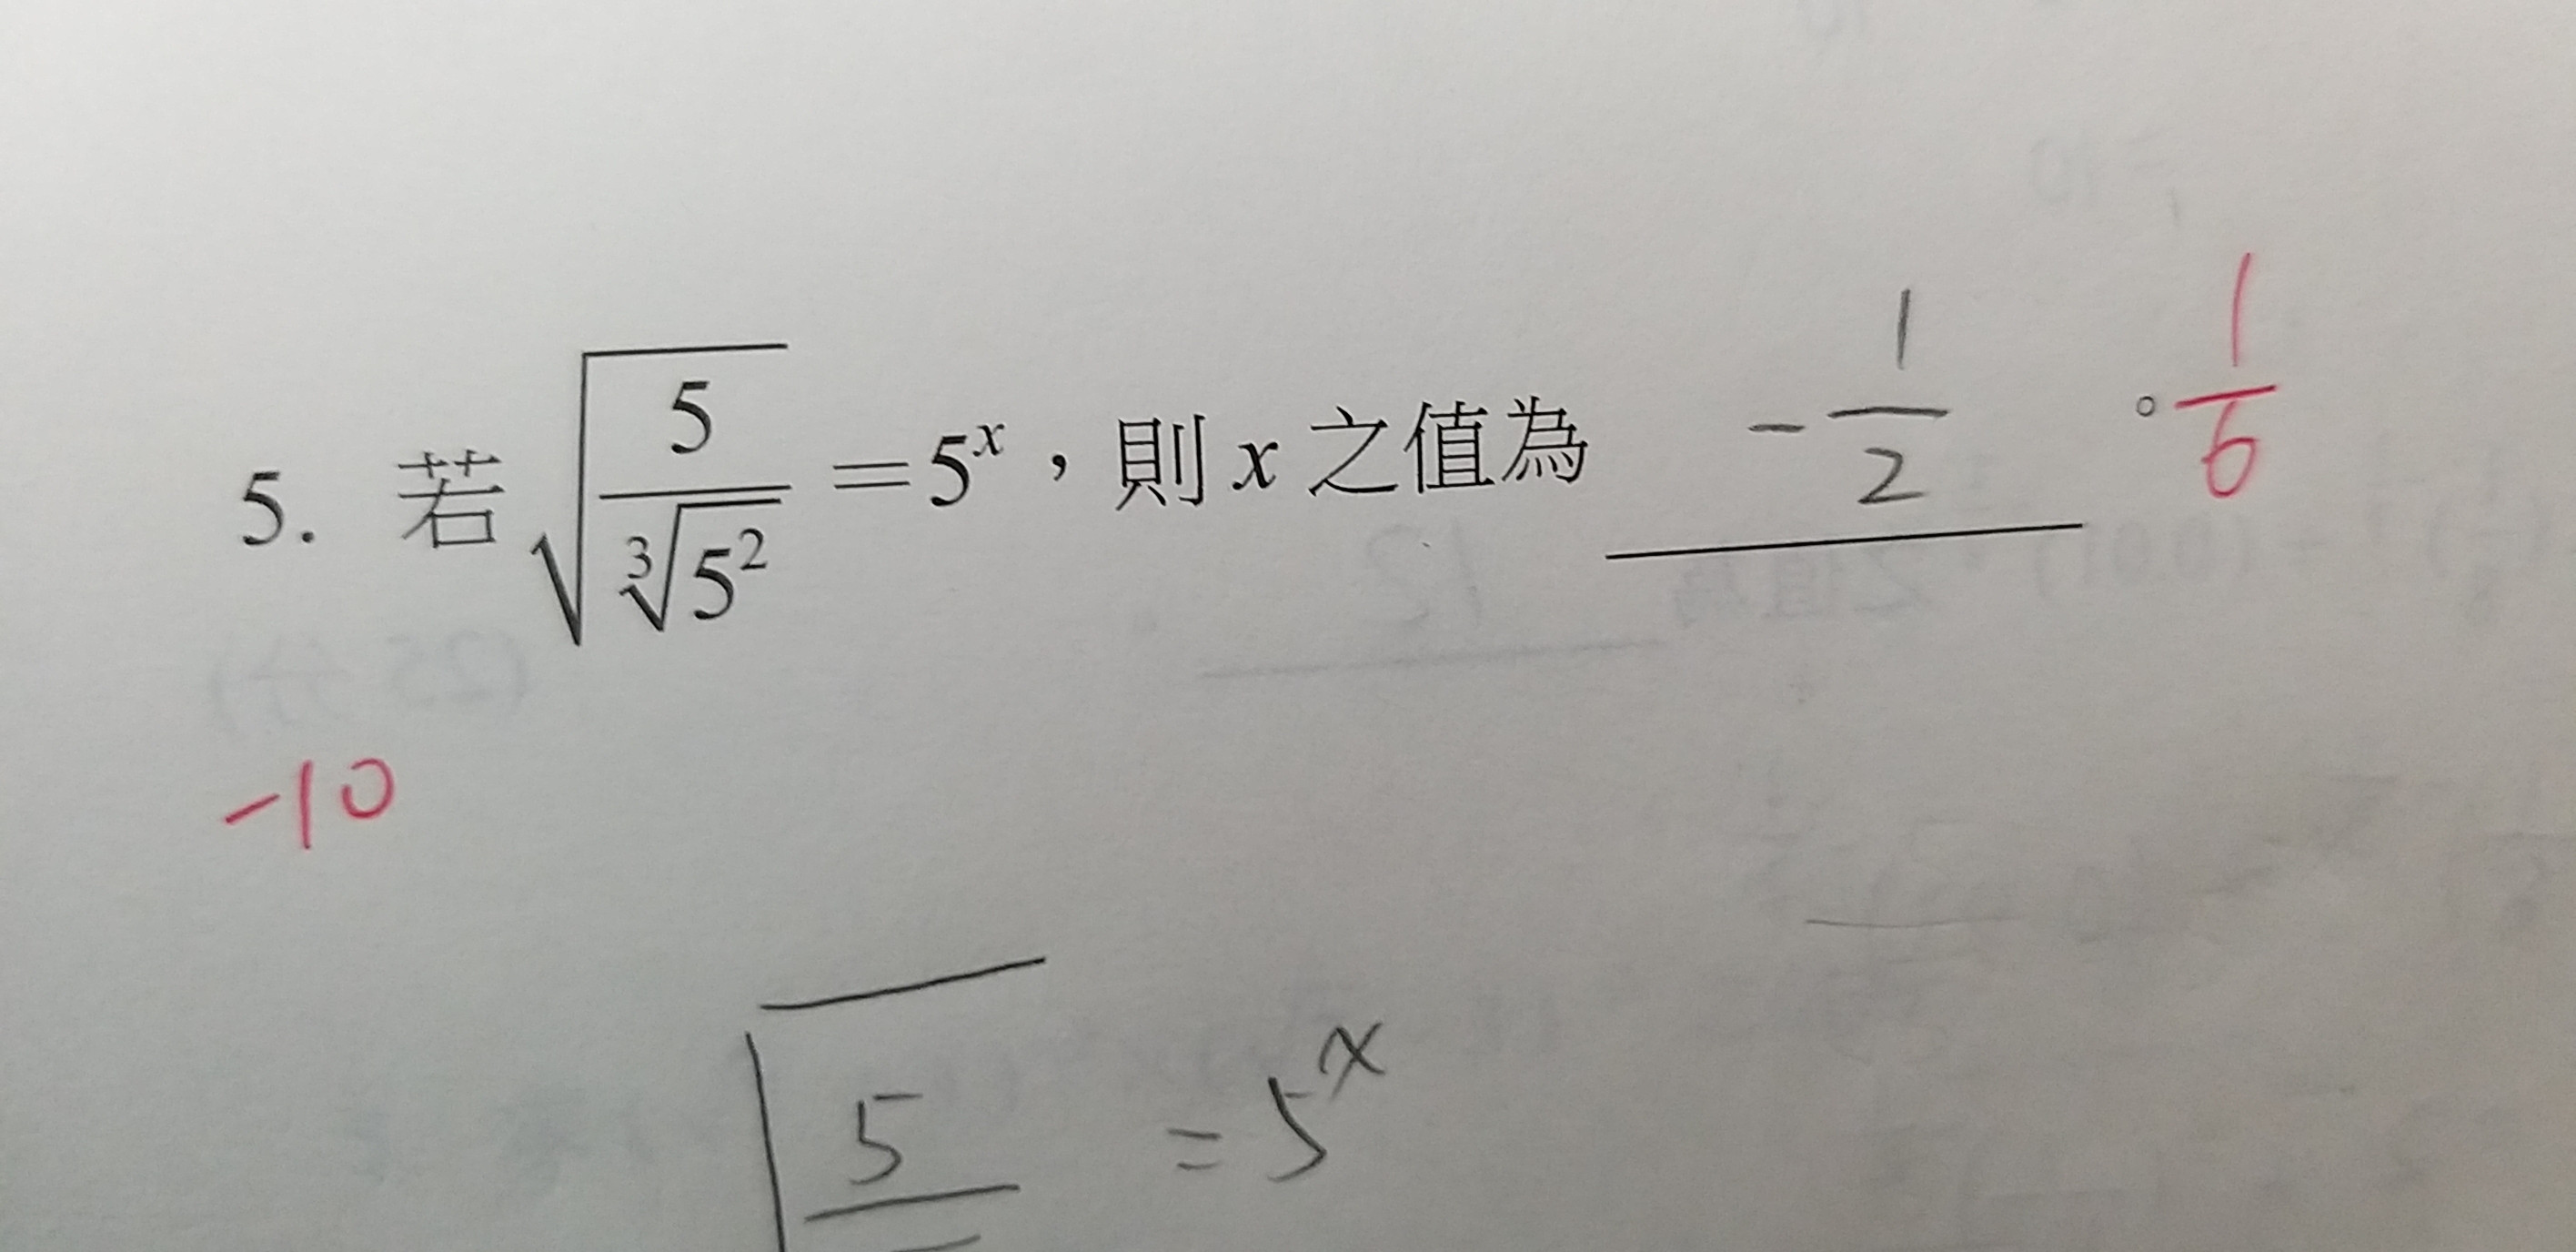 5. 若 $\sqrt{\frac{5}{\sqrt[3]{5^2}}}=5^x$，則 x 之值為 $-\frac{1}{2}$ 。 $\frac{1}{6}$
-10
$\sqrt{\frac{5}{}}$ = $5^x$